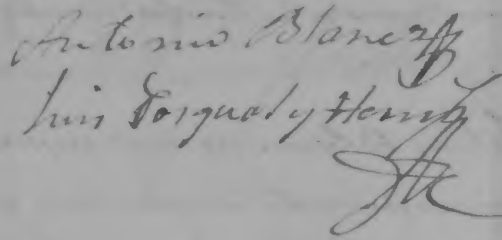 Antonio Blanez
Luis Pasqual y Henry